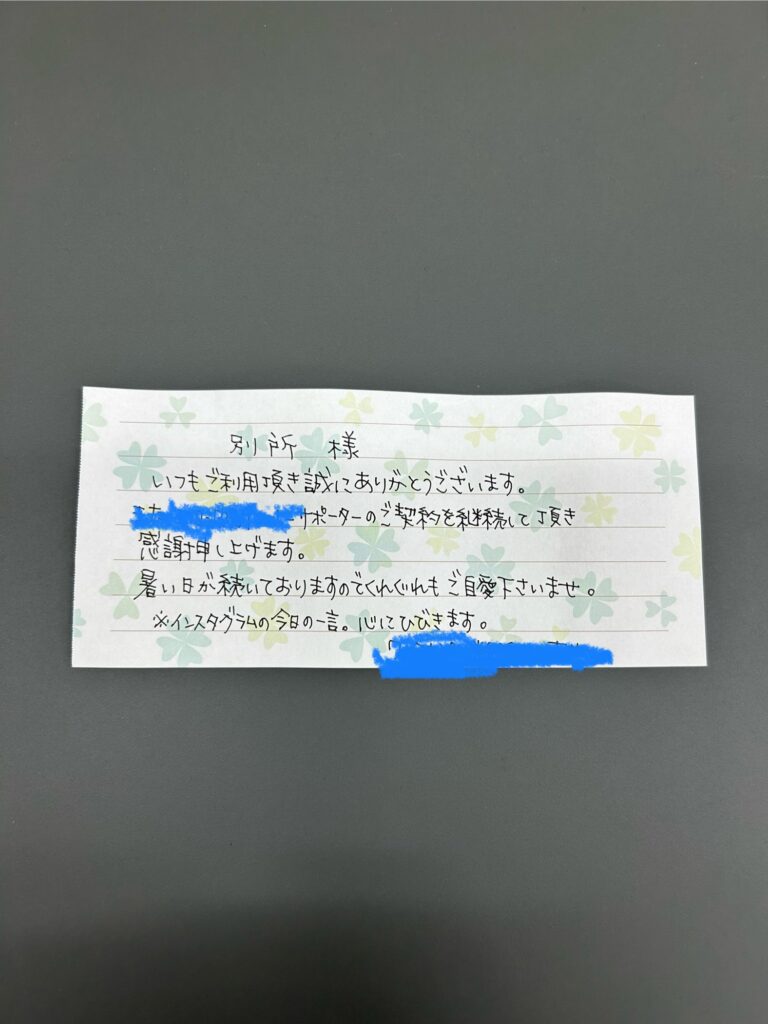 別所 様
いつもご利用頂き誠にありがとうございます。
サポーターのご契約を継続して頂き
感謝申し上げます。
暑い日が続いておりますのでくれぐれもご自愛下さいませ。
※インスタグラムの今日の一言。心にひびきます。